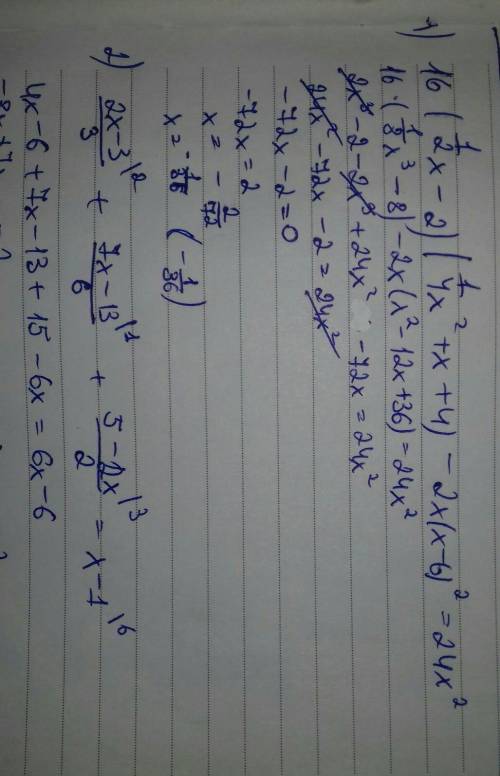 1) 16 (1/2x - 2) (1/4x² + x + 4) - 2x(x-6)² = 24x²
16 · (1/8x³ - 8) - 2x(x² - 12x + 36) = 24x²
2x³ - 2 - 2x³ + 24x² - 72x = 24x²
24x² - 72x - 2 = 24x²
-72x - 2 = 0
-72x = 2
x = - 2/72
x = - 1/36 (- 1/36)
2) 2x-3/3 \2 + 7x-13/6 \1 + 5-2x/2 \3 = x-1 \6
4x - 6 + 7x - 13 + 15 - 6x = 6x - 6